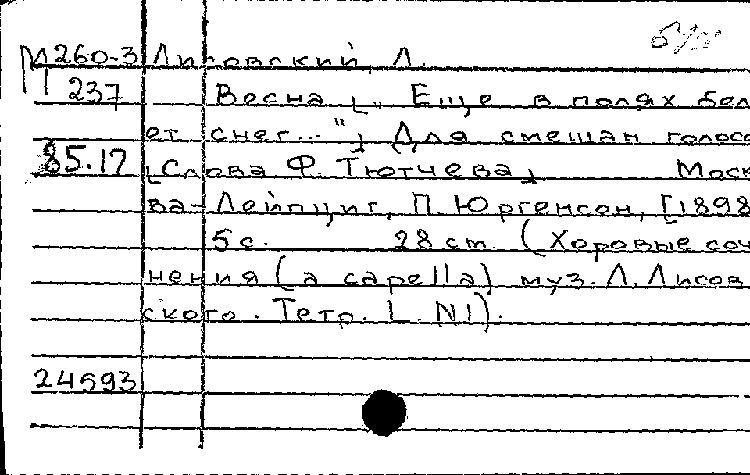 М260-3 Лисовский, Л.
237 Весна [„ Еще в полях бел
ет снег..."] Для смешан голосо
85.17 [Слова Ф. Тютчева] Моск
ва-Лейпциг, П. Юргенсон, [1898
5 с. 28 cm. (Хоровые соч
нения (a capella) муз. Л. Лисов
ского. Тетр. L. N1).
24593